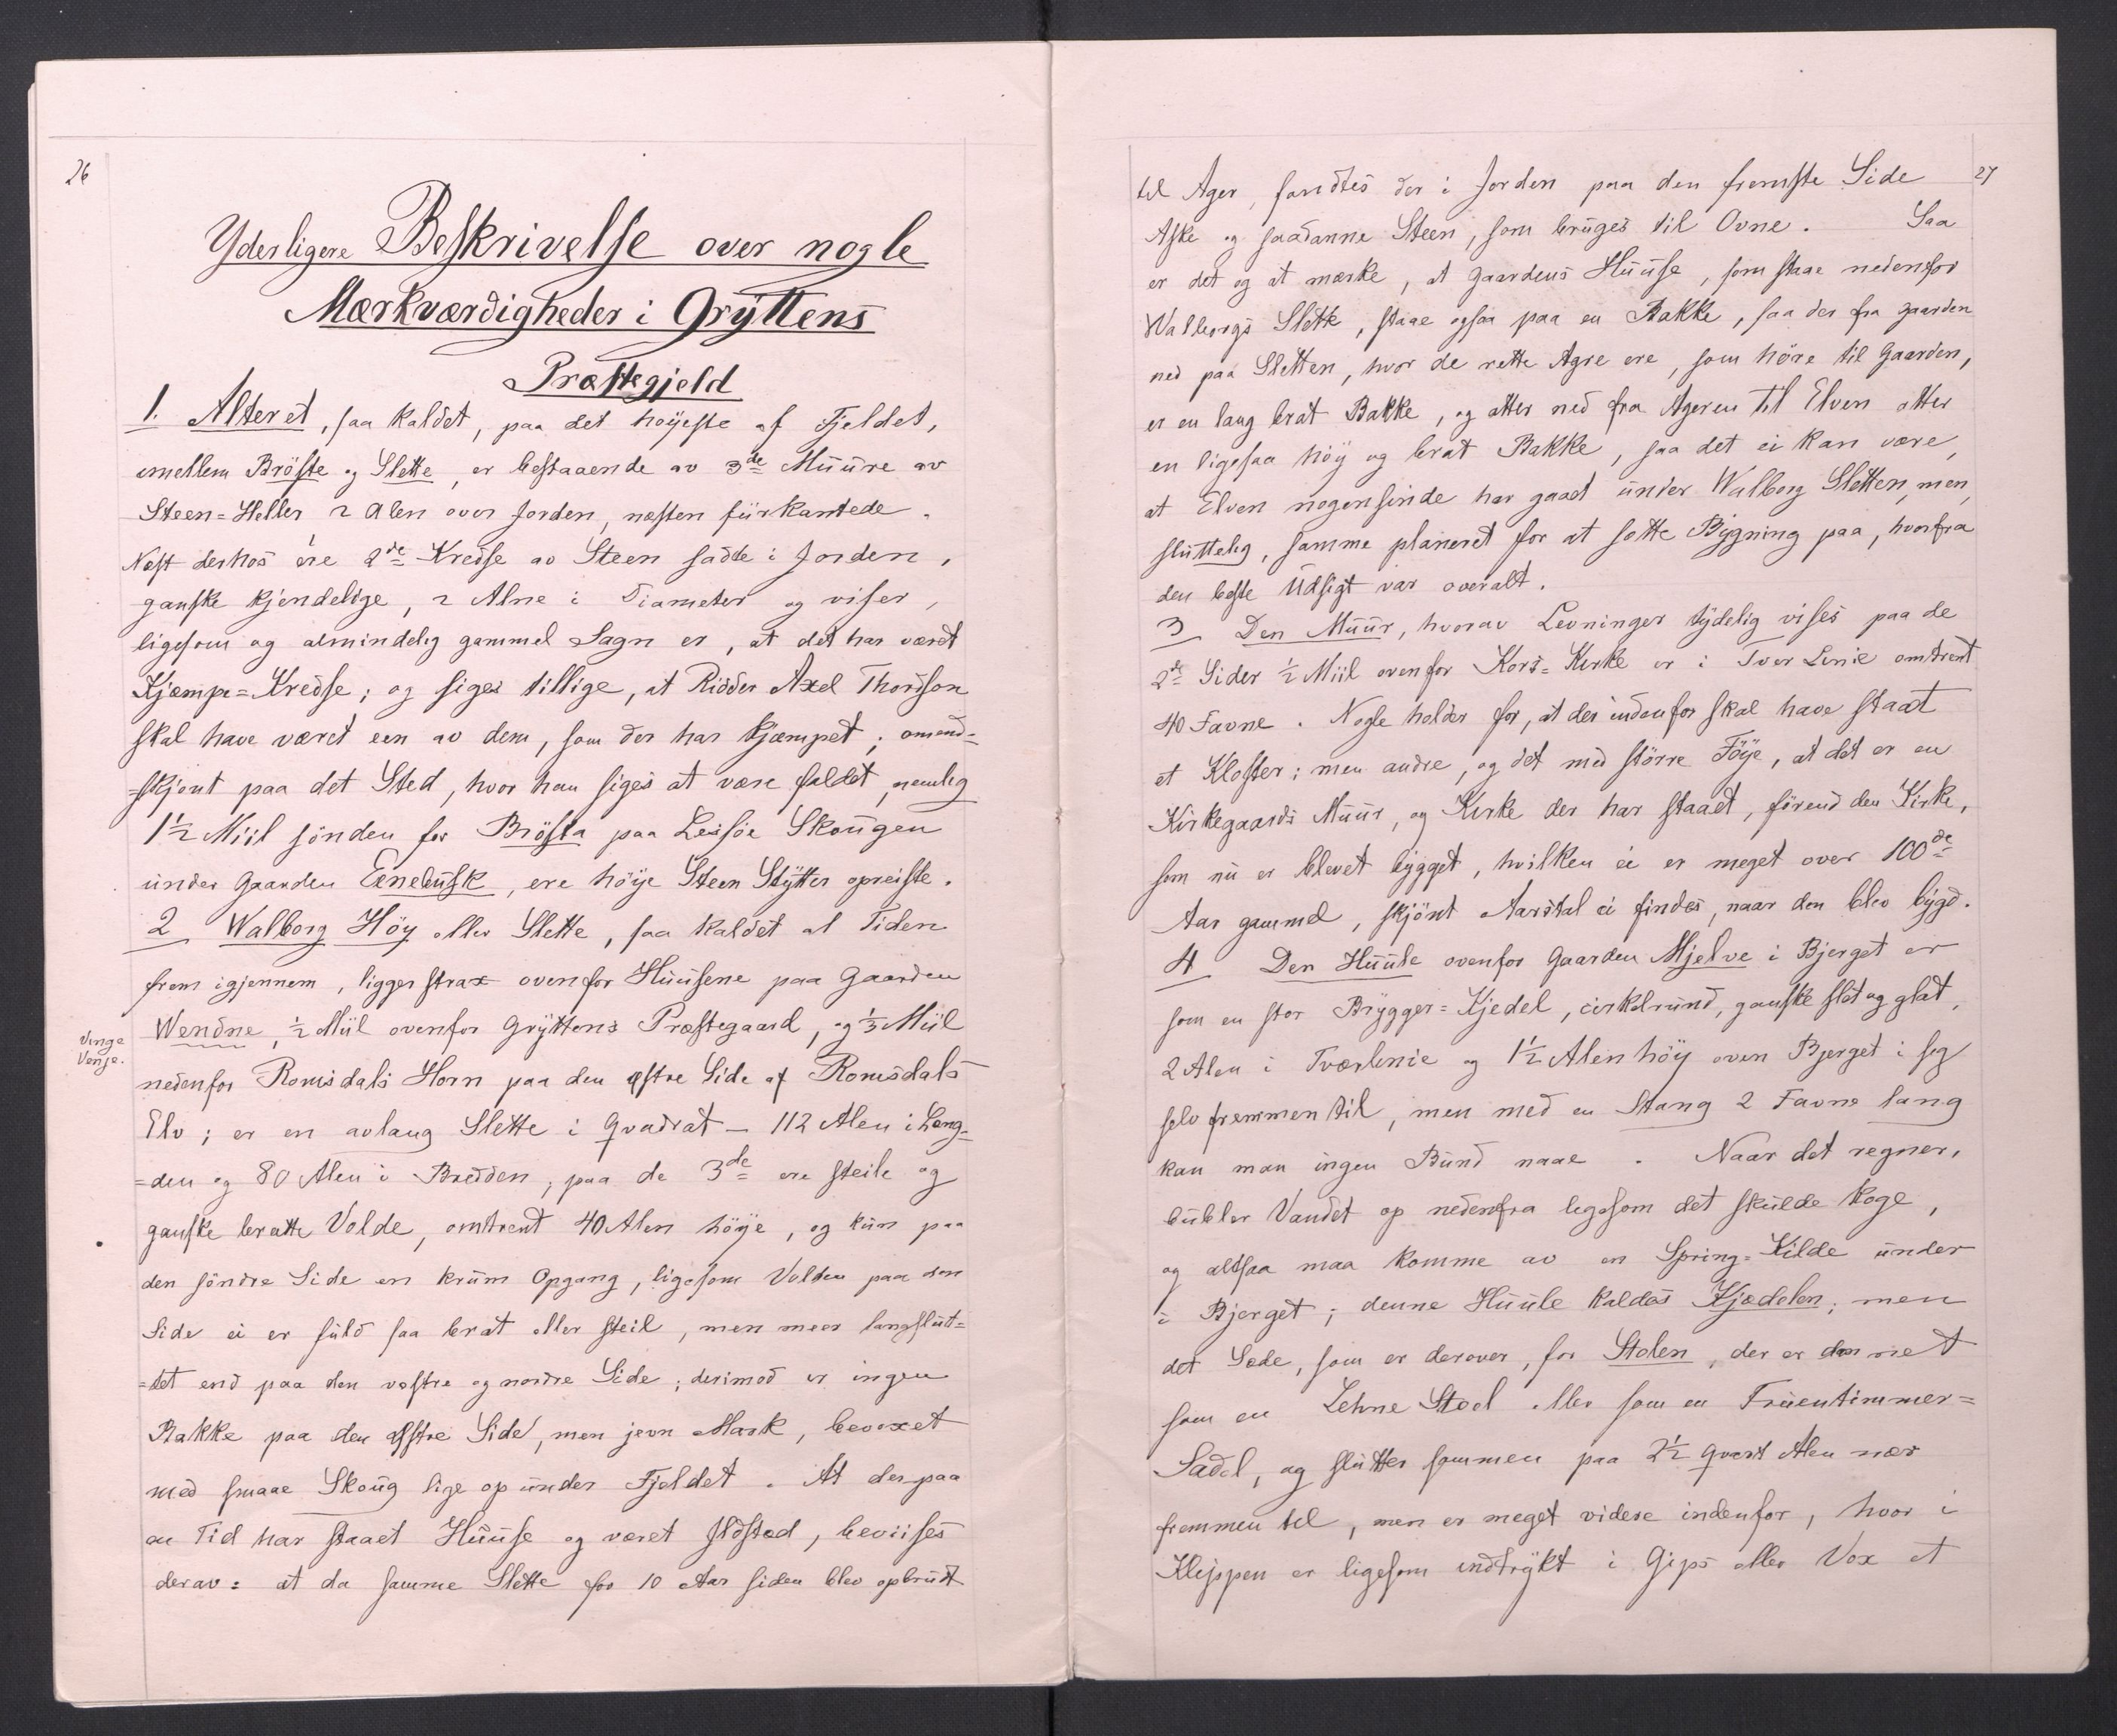 26
Yderligere Beskrivelse over nogle
Mærkværdigheder i Gryttens
Præstegjeld
1. Alteret, saa kaldet, paa det höyeste af Fjeldet,
imellem Bröste og Slette, er bestaaende av 3de Muure av
Steen=Heller 2 Alen over Jorden, næsten fürkantede.
Næst derhos ere 2de Kredse av Steen sadde i Jorden,
ganske kjendelige, 2 Alne i Diameter og viser,
ligesom og almindelig gammel Sagn er, at det har været
Kjæmpe=Kredse; og siges tillige, at Ridder Axel Thordson
skal have været een av dem, som der har kjæmpet; omend=
=skjønt paa det Sted, hvor han siges at være faldet, nemlig
1½ Miil sönden for Brösta paa Lessöe Skougen
under Gaarden Einebusk, ere höye Steen Stytter opreiste.
2 Walborg Höy eller Slette, saa kaldet al Tiden
frem igjennem, ligger strax ovenfor Huusene paa Gaarden
Wendne, ½ Miil ovenfor Gryttens Præstegaard, og ⅓ Miil
Vinge
Venje.
nedenfor Romsdals Horn paa den østre Side af Romsdals
Elv; er en avlang Slette i Qvadrat – 112 Alen i Læng=
=den og 80 Alen i Bredden, paa de 3de ere steile og
ganske bratte Volde, omtrent 40 Alen höye, og kun paa
den söndre Side en krum Opgang, ligesom Volden paa den
Side ei er fuld saa brat eller steil, men meer langslut=
=tet end paa den vestre og nordre Side; derimod er ingen
Bakke paa den østre Side, men jevn Mark, bevoxet
med smaae Skoug lige op under Fjeldet. At der paa
en Tid har staaet Huuse og været Ildsted, beviises
derav: at da samme Slette for 10 Aar siden blev opbrudt
27
til Ager, fandtes der i Jorden paa den fremste Side
Aske og saadanne Steen, som bruges til Ovne. Saa
er det og at mærke, at Gaardens Huuse, som staae nedenfor
Walborgs Slette, staae ogsaa paa en Bakke, saa der fra Gaarden
ned paa Sletten, hvor de rette Agre ere, som höre til Gaarden,
er en lang brat Bakke, og atter ned fra Ageren til Elven atter
en ligesaa höy og brat Bakke, saa det ei kan være,
at Elven nogensinde har gaaet under Walborg Sletten, men
sluttelig, samme planeret for at sætte Bygning paa, hvorfra
den beste Udsigt var overalt.
3 Den Muur, hvorav Levninger tydelig vises paa de
2de Sider ½ Miil ovenfor Kors=Kirke er i Tver Linie omtrent
40 Favne. Nogle holder for, at der indenfor skal have staaet
et Kloster; men andre, og det med större Föye, at det er en
Kirkegaards Muur, og Kirke der har staaet, förend den Kirke,
som nu er blevet bygget, hvilken ei er meget over 100de
Aar gammel, skjönt Aarstal ei findes, naar den blev bygd.
4 Den Huule ovenfor Gaarden Mjelve i Bjerget er
som en stor Brygger=Kjedel, cirkelrund, ganske slet og glat,
2 Alen i Tværlinie og 1½ Alen höy oven Bjerget i sig
selv fremmen til, men med en Stang 2 Favne lang
kan man ingen Bund naae. Naar det regner,
bubler Vandet op nedenfra ligesom det skulde koge,
og altsaa maa komme av en Spring=Kilde under
i Bjerget; denne Huule kaldes Kjædelen; men
det Sæde, som er derover, for Stolen, der er dannet
som en Lehne Stoel eller som en Fruentimmer=
Sadel, og slutter sammen paa 2½ Qvart Alen nær
fremmen til, men er meget videre indenfor, hvor i
Klippen er ligesom indtrykt i Gips eller Vox et